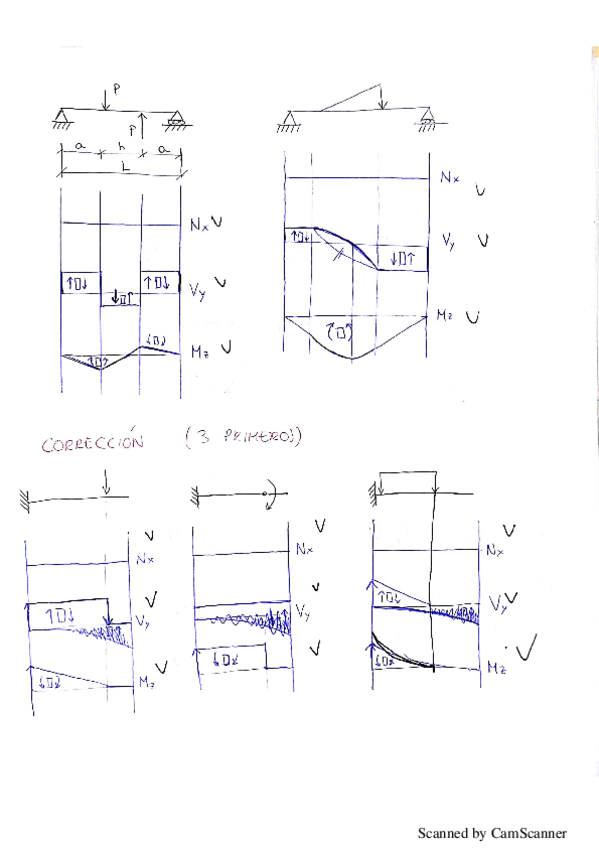 P
P
a h a
L
Nx
Vy
Mz
Nx
Vy
Mz
CORRECCIÓN (3 PRIMEROS)
Nx
Vy
Mz
Nx
Vy
Nx
Vy
Mz
Scanned by CamScanner